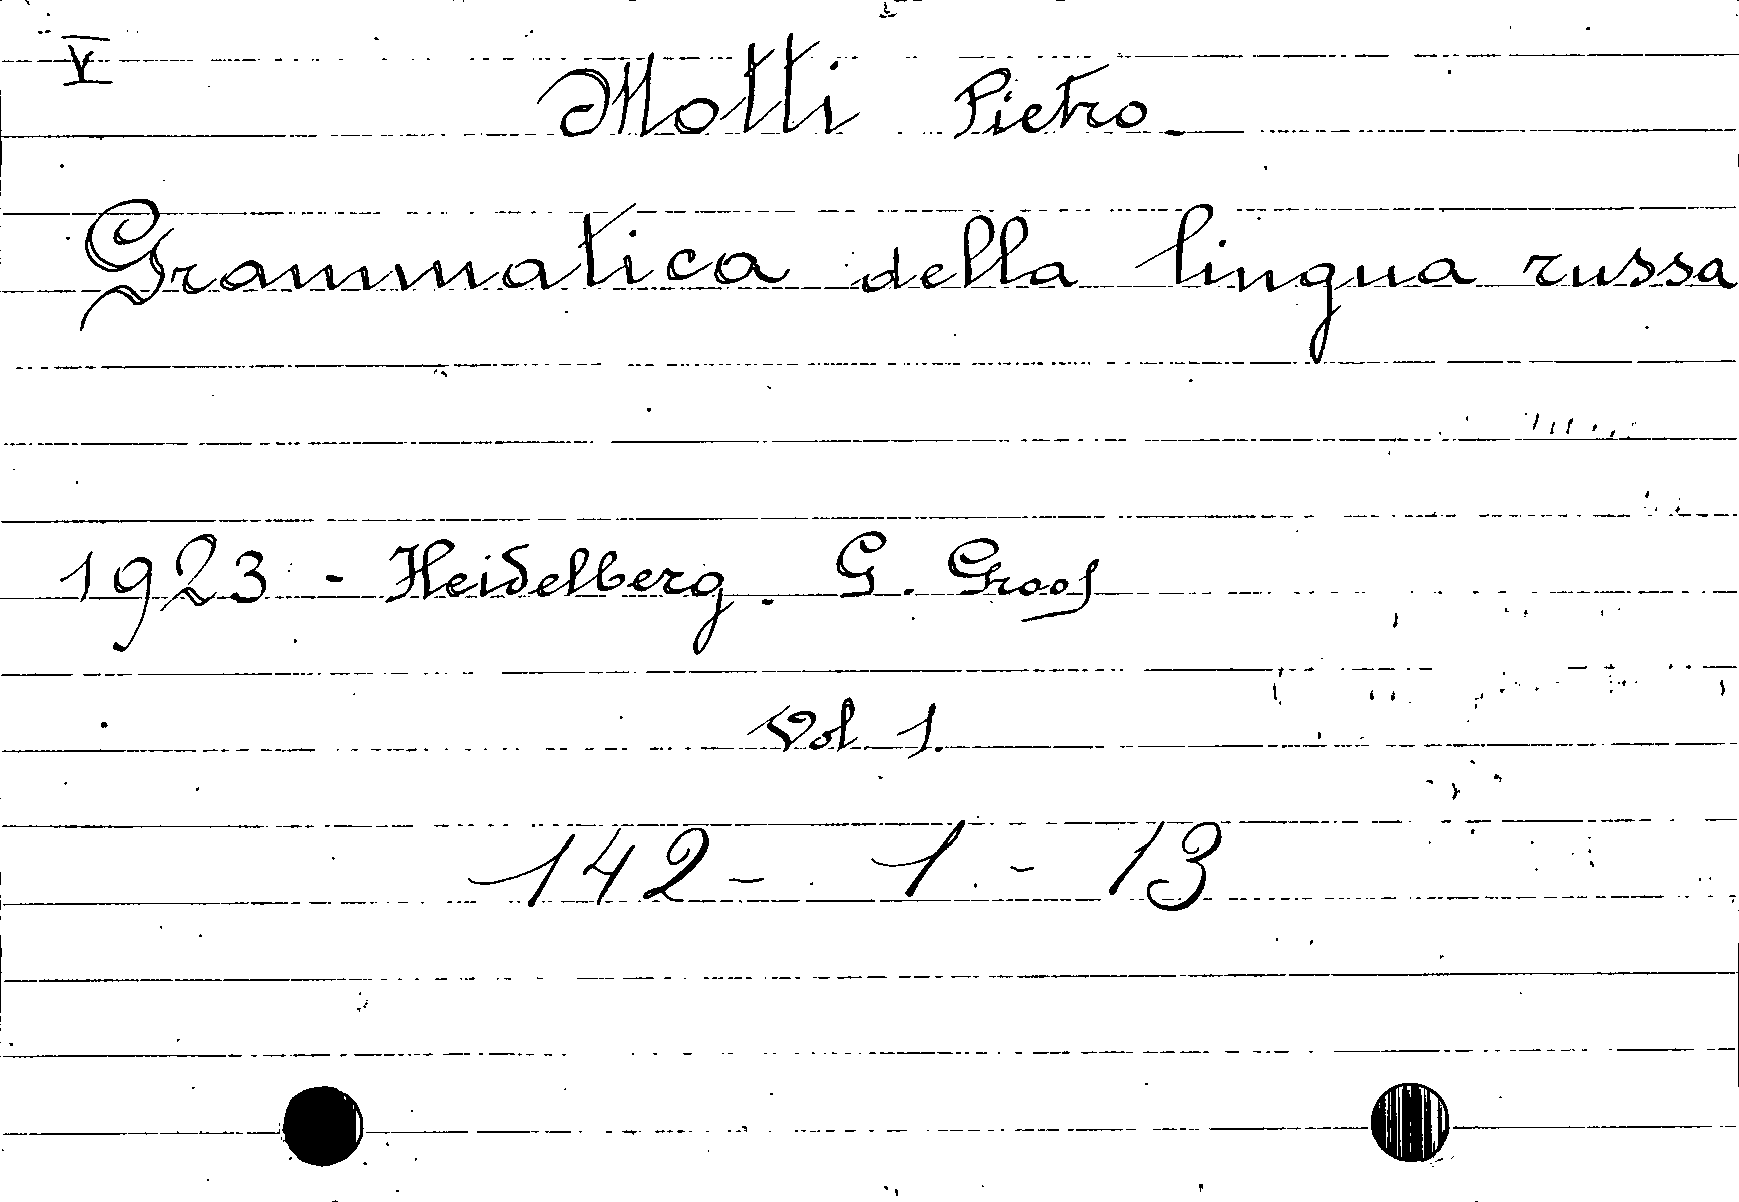 V
Motti Pietro.
Grammatica della lingua russa
1923 - Heidelberg. G. Groos
Vol 1.
142 - 1 - 13